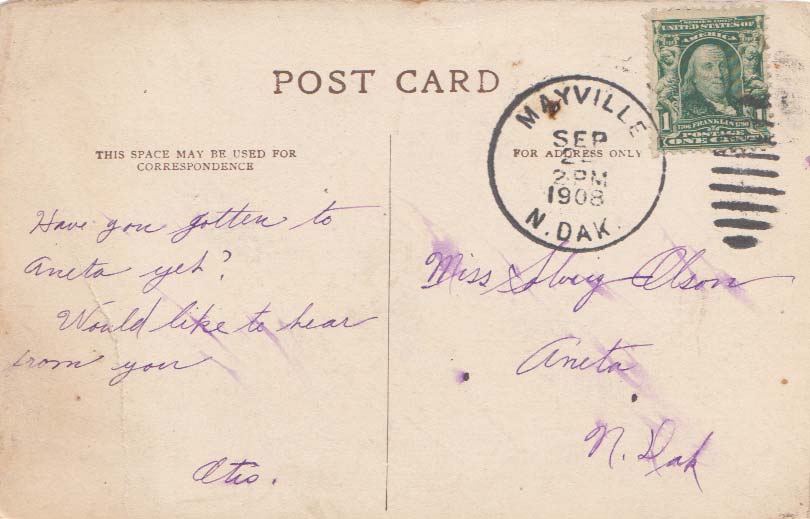 POST CARD
THIS SPACE MAY BE USED FOR
CORRESPONDENCE
FOR ADDRESS ONLY
SERIES 1902
UNITED STATES OF
AMERICA
1 1
FRANKLIN
POSTAGE
ONE CENT
MAYVILLE
SEP
2 PM
1908
N. DAK.
Have you gotten to
Aneta yet?
Would like to hear
from you
Otis.
Miss Solveig Olson
Aneta
N. Dak